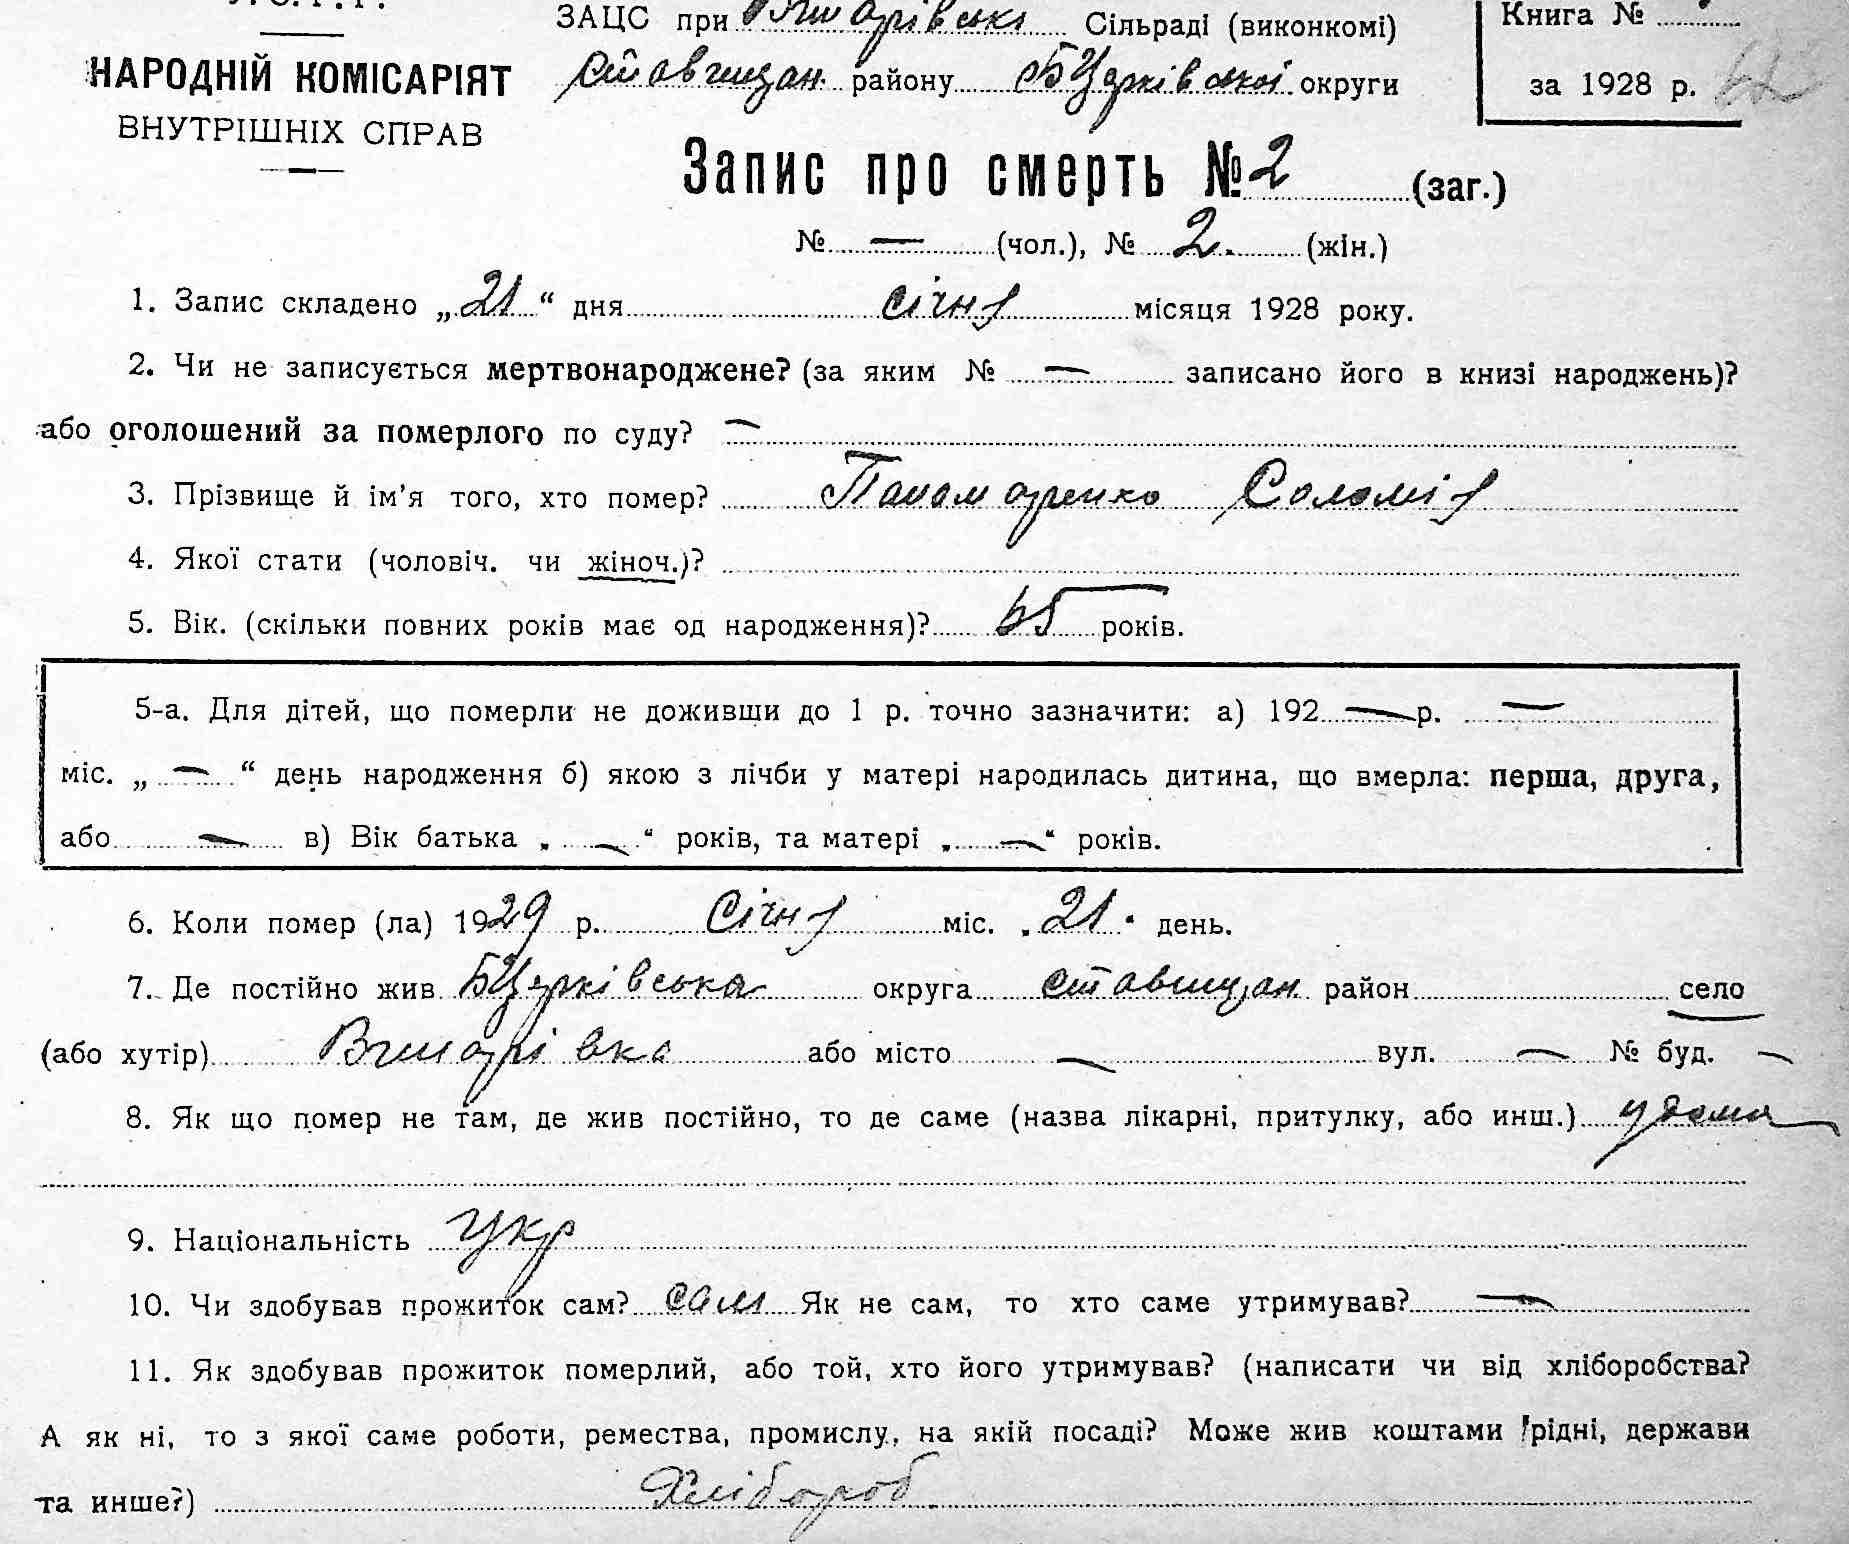 У. С. Р. Р.
НАРОДНІЙ КОМІСАРІЯТ
ВНУТРІШНІХ СПРАВ
ЗАЦС при Сільраді (виконкомі)
Ставищан району БЦерківської округи
Книга №
за 1928 р.
Запис про смерть № 2 (заг.)
№ — (чол.), № 2. (жін.)
1. Запис складено „21“ дня січня місяця 1928 року.
2. Чи не записується мертвонароджене? (за яким № — записано його в книзі народжень)?
або оголошений за померлого по суду? —
3. Прізвище й ім’я того, хто помер? Панамаренко Соломія
4. Якої стати (чоловіч. чи жіноч.)?
5. Вік. (скільки повних років має од народження)? 65 років.
5-а. Для дітей, що померли не доживши до 1 р. точно зазначити: а) 192 — р. —
міс. „ — “ день народження б) якою з лічби у матері народилась дитина, що вмерла: перша, друга,
або — в) Вік батька „ — “ років, та матері „ — “ років.
6. Коли помер (ла) 1929 р. Січня міс. „21“ день.
7. Де постійно жив БЦерківська округа Ставищан район село
(або хутір) або місто — вул. — № буд. —
8. Як що помер не там, де жив постійно, то де саме (назва лікарні, притулку, або инш.) у дома
9. Національність Укр
10. Чи здобував прожиток сам? сам Як не сам, то хто саме утримував? —
11. Як здобував прожиток померлий, або той, хто його утримував? (написати чи від хліборобства?
А як ні, то з якої саме роботи, ремества, промислу, на якій посаді? Може жив коштами рідні, держави
та инше?) Хлібороб